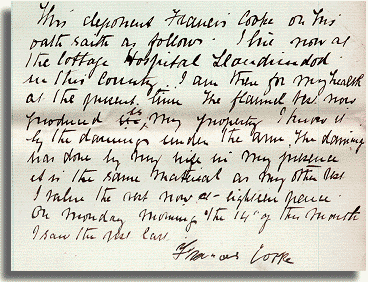 This deponent Francis Cooke on his
oath saith as follows. I live now at
the Cottage Hospital Llandrindod
in this County. I am there for my health
at the present time The flannel vest now
produced is my property I know it
by the darnings under the arm. The darning
was done by my wife in my presence
it is the same material as my other vest
I value the vest now at eighteen pence.
On Monday morning the 14th of this month
I saw the vest last.
Francis Cooke